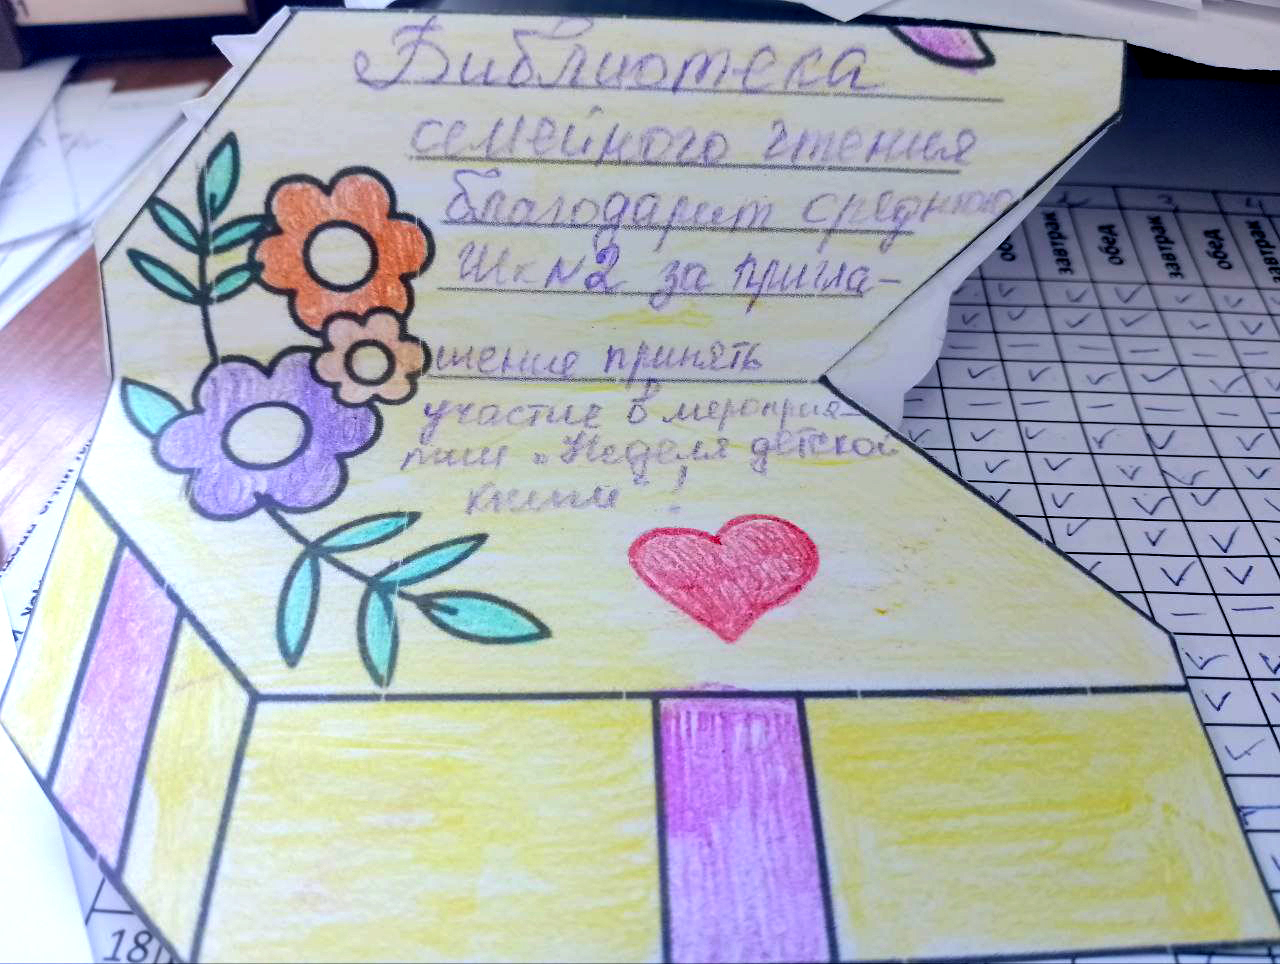 Библиотека
семейного чтения
благодарит среднюю
Шк№2 за пригла-
шение принять
участие в мероприя-
тии „Неделя детской
книги"!
завтрак
обед
завтрак
обед
завтрак
18